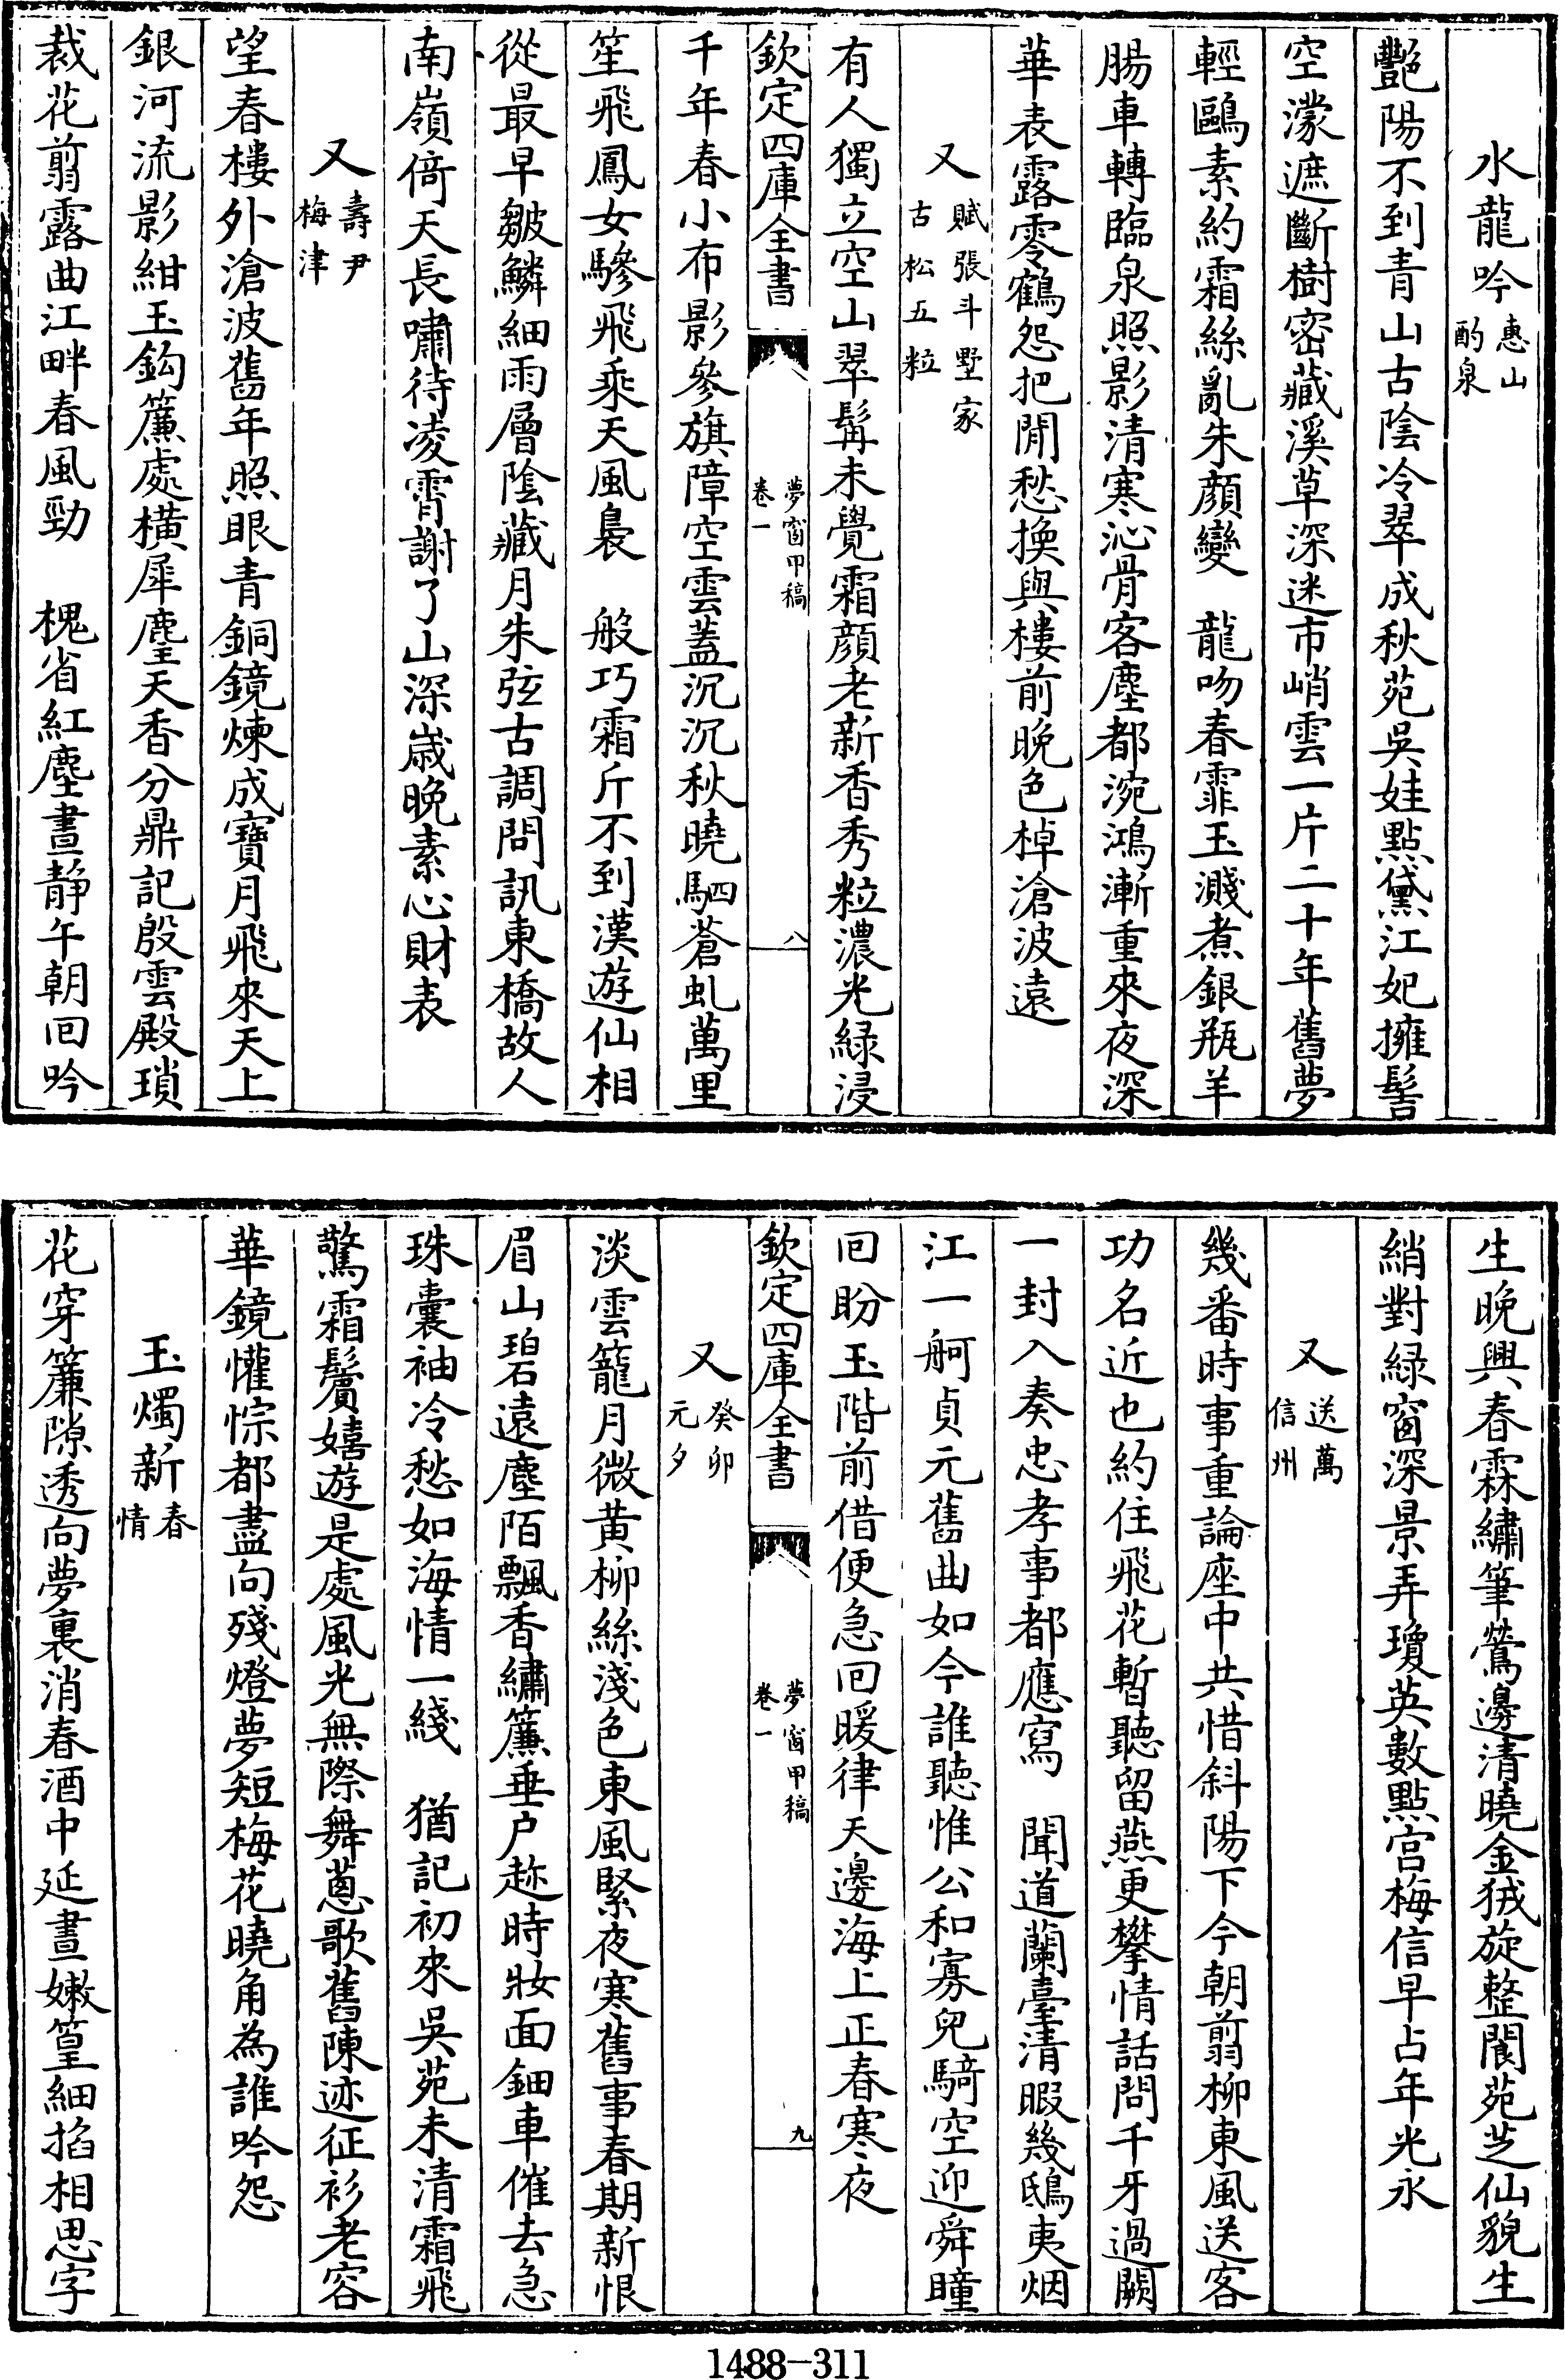 水龍吟惠山酌泉
艷陽不到青山古陰冷翠成秋苑吳娃點黛江妃擁髻
空濛遮斷樹密藏溪草深迷市峭雲一片二十年舊夢
輕鷗素約霜絲亂朱顏變　龍吻春霏玉濺煮銀瓶羊
腸車轉臨泉照影清寒沁骨客塵都浣鴻漸重來夜深
華表露零鶴怨把閒愁換與樓前晚色棹滄波遠
又賦張斗墅家古松五粒
有人獨立空山翠髯未覺霜顏老新香秀粒濃光緑浸
欽定四庫全書　夢窗甲稿卷一　八
千年春小布影參旗障空雲蓋沉沉秋曉駟蒼虬萬里
笙飛鳳女驂飛乘天風裊　般巧霜斤不到漢遊仙相
從最早皺鱗細雨層陰藏月朱弦古調問訊東橋故人
南嶺倚天長嘯待凌霄謝了山深歳晚素心財表
又壽尹梅津
望春樓外滄波舊年照眼青銅鏡煉成寶月飛來天上
銀河流影紺玉鈎簾處橫犀麈天香分鼎記殷雲殿瑣
裁花翦露曲江畔春風勁　槐省紅塵晝静午朝回吟
生晚興春霖繡筆鶯邊清曉金狨旋整閬苑芝仙貌生
綃對緑窗深景弄瓊英數點宫梅信早占年光永
又送萬信州
幾番時事重論座中共惜斜陽下今朝翦柳東風送客
功名近也約住飛花暫聽留燕更攀情話問千牙過闕
一封入奏忠孝事都應寫　聞道蘭臺清暇幾鴟夷烟
江一舸貞元舊曲如今誰聽惟公和寡兒騎空迎舜瞳
回盼玉階前借便急回暖律天邊海上正春寒夜
欽定四庫全書　夢窗甲稿卷一　九
又癸卯元夕
淡雲籠月微黄柳絲淺色東風緊夜寒舊事春期新恨
眉山碧遠塵陌飄香繡簾垂户趂時妝面鈿車催去急
珠囊袖冷愁如海情一綫　猶記初來吳苑未清霜飛
驚霜鬢嬉遊是處風光無際舞蔥歌舊陳迹征衫老容
華鏡懽悰都盡向殘燈夢短梅花曉角為誰吟怨
玉燭新春情
花穿簾隙透向夢裏消春酒中延晝嫩篁細掐相思字
1488—311